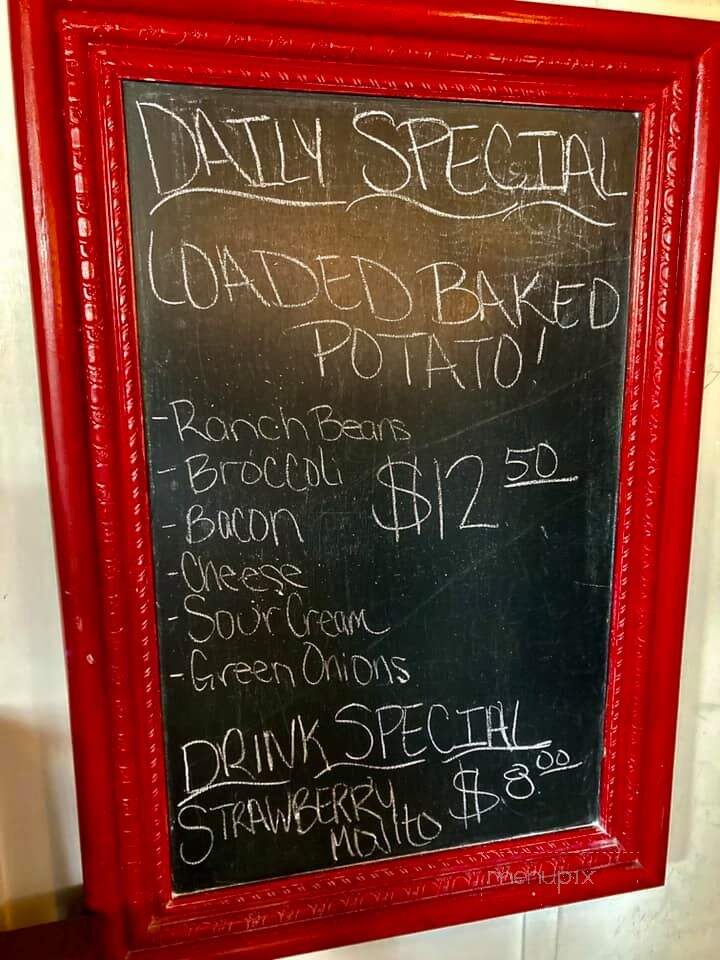 DAILY SPECIAL
LOADED BAKED
POTATO!
-Ranch Beans
-Broccoli
$12.50
-Bacon
-Cheese
-Sour Cream
-Green Onions
DRINK SPECIAL
STRAWBERRY $8.00
Mojito
menupix